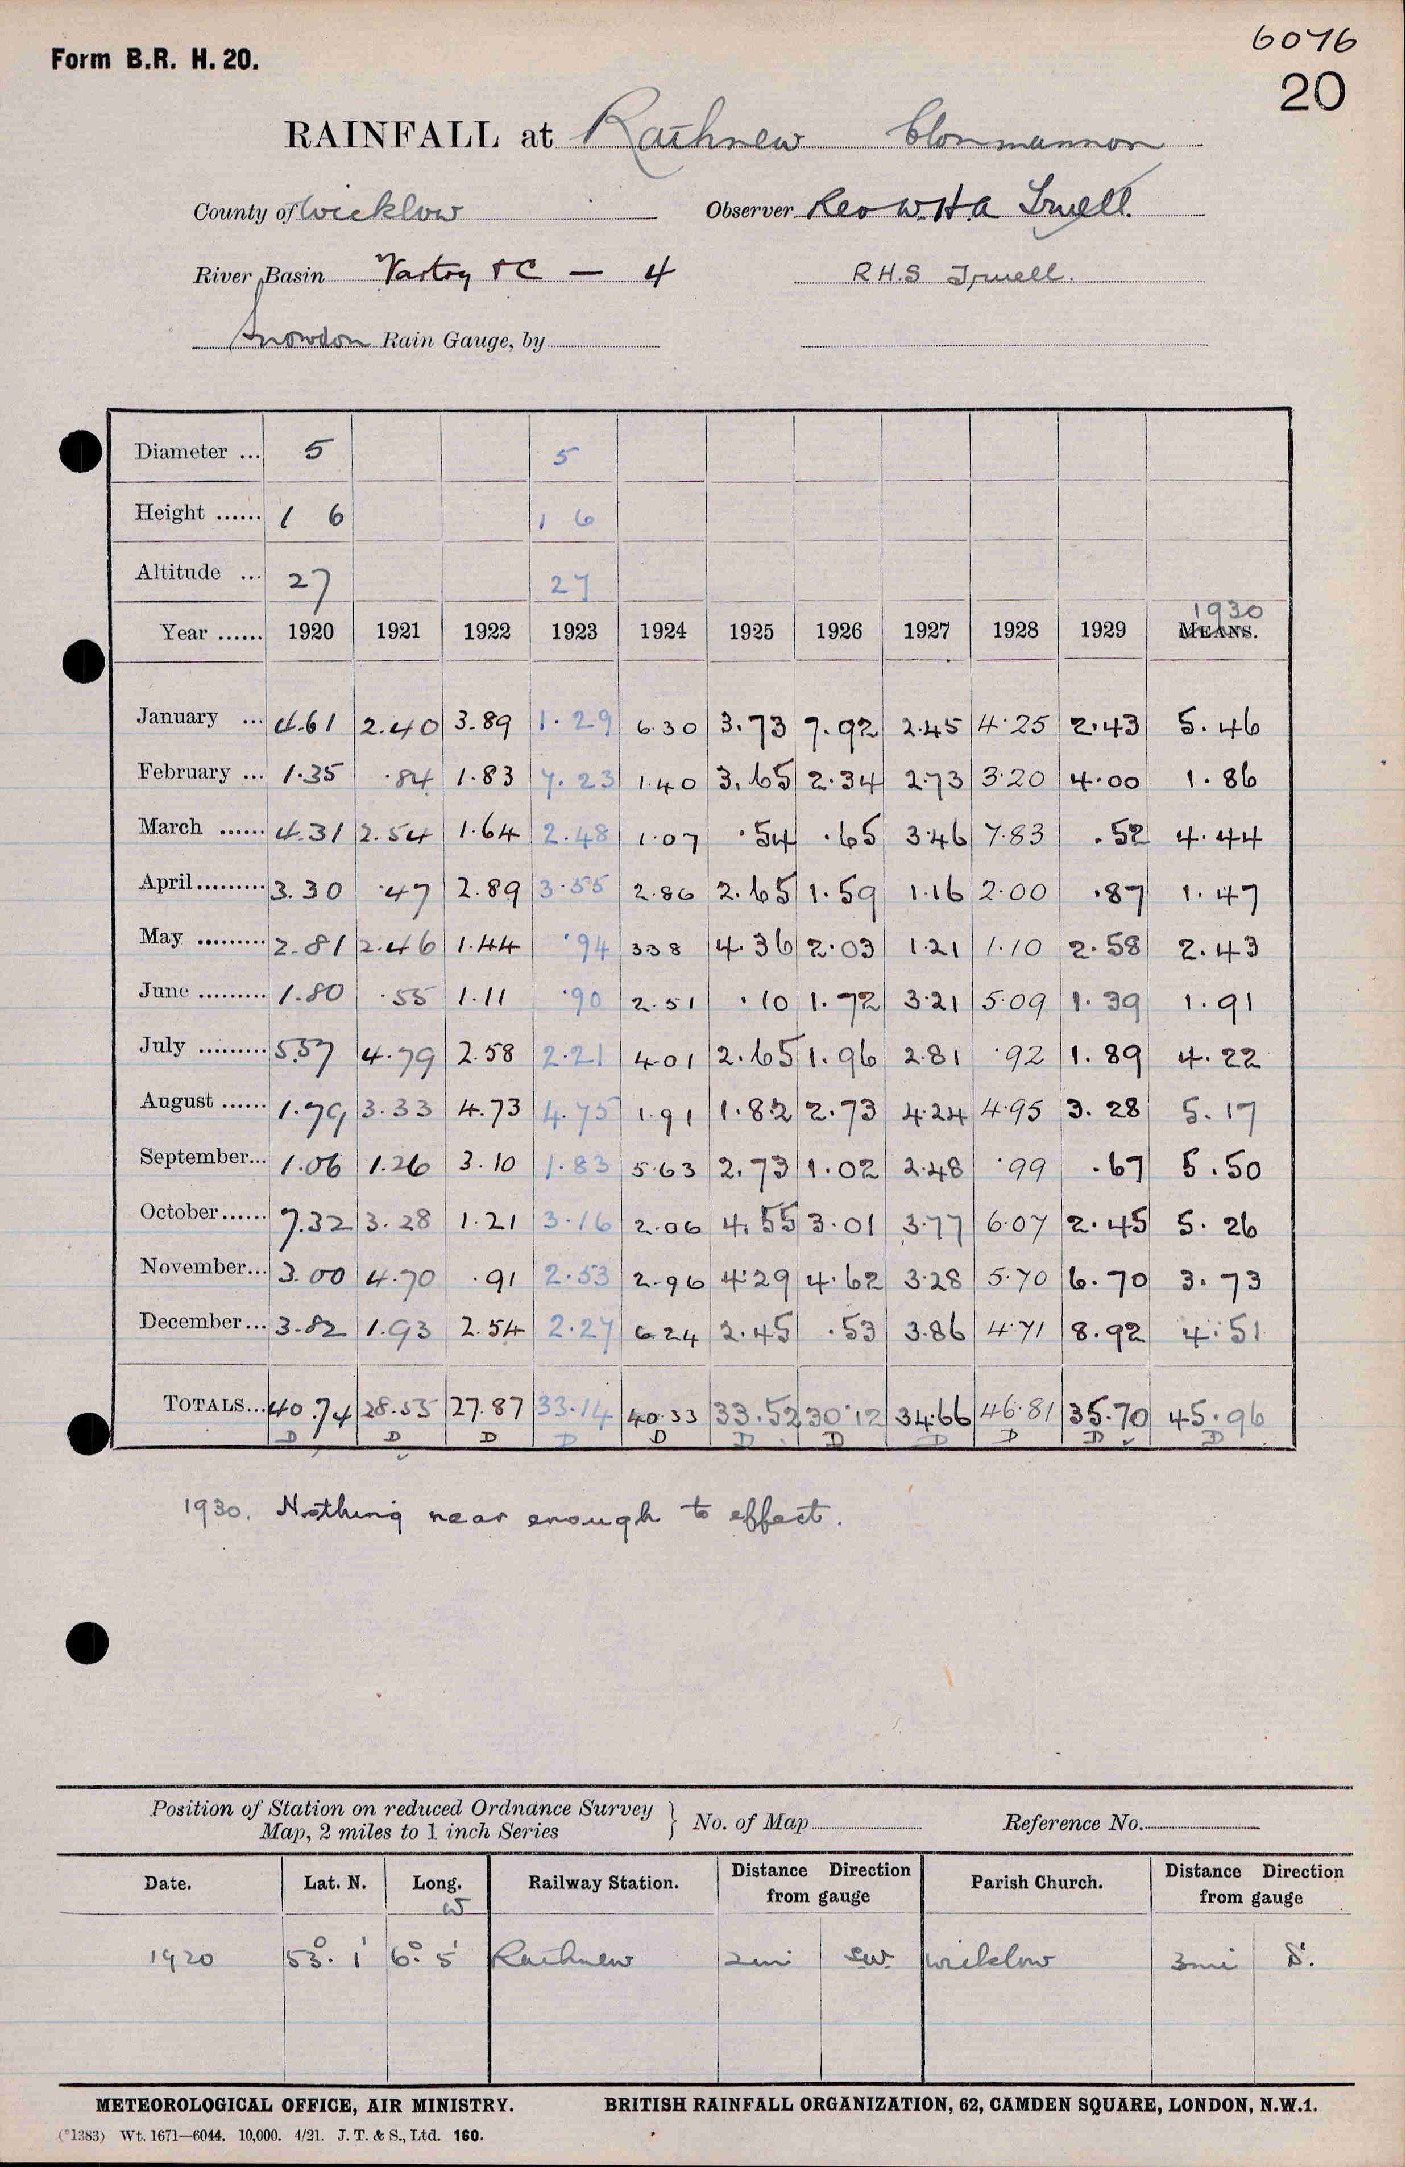 6076
Form B.R. H. 20.
20
RAINFALL at Rathnew Clonmannon
County of Wicklow Observer Rev W.H.A Truell
River Basin Vartry &C — 4 R.H.S Truell.
Snowdon Rain Gauge, by
Diameter ... 5 5
Height ...... 1 6 1 6
Altitude ... 27 27
1930
Year ...... 1920 1921 1922 1923 1924 1925 1926 1927 1928 1929 MEANS.
January ... 4.61 2.40 3.89 1.29 6.30 3.73 7.92 2.45 4.25 2.43 5.46
February ... 1.35 .84 1.83 7.23 1.40 3.65 2.34 2.73 3.20 4.00 1.86
March ...... 4.31 2.54 1.64 2.48 1.07 .54 .65 3.46 7.83 .52 4.44
April......... 3.30 .47 2.89 3.55 2.86 2.65 1.59 1.16 2.00 .87 1.47
May ......... 2.81 2.46 1.44 .94 3 3 8 4.36 2.03 1.21 1.10 2.58 2.43
June ......... 1.80 .55 1.11 .90 2.51 .10 1.72 3.21 5.09 1.39 1.91
July ......... 5.57 4.79 2.58 2.21 4.01 2.65 1.96 2.81 .92 1.89 4.22
August ...... 1.79 3.33 4.73 4.75 1.91 1.82 2.73 4.24 4.95 3.28 5.17
September... 1.06 1.26 3.10 1.83 5.63 2.73 1.02 2.48 .99 .67 5.50
October...... 7.32 3.28 1.21 3.16 2.06 4.55 3.01 3.77 6.07 2.45 5.26
November... 3.00 4.70 .91 2.53 2.96 4.29 4.62 3.28 5.70 6.70 3.73
December... 3.82 1.93 2.54 2.27 6.24 2.45 .53 3.86 4.71 8.92 4.51
TOTALS... 40.74 28.55 27.87 33.14 40.33 33.52 30.12 34.66 46.81 35.70 45.96
D D D D D D D D D D D
1930. Nothing near enough to effect.
Position of Station on reduced Ordnance Survey
Map, 2 miles to 1 inch Series } No. of Map Reference No.
Date. Lat. N. Long. W Railway Station. Distance Direction from gauge Parish Church. Distance Direction from gauge
1920 53° 1' 6° 5' Rathnew 2mi SW. Wicklow 3mi S.
METEOROLOGICAL OFFICE, AIR MINISTRY. BRITISH RAINFALL ORGANIZATION, 62, CAMDEN SQUARE, LONDON, N.W.1.
(*1383) Wt. 1671—6044. 10,000. 4/21. J. T. & S., Ltd. 160.